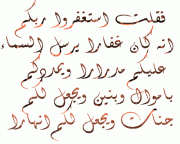 فقلت استغفروا ربكم
انه كان غفارا يرسل السماء
عليكم مدرارا ويمددكم
باموال وبنين ويجعل لكم
جنات ويجعل لكم انهارا